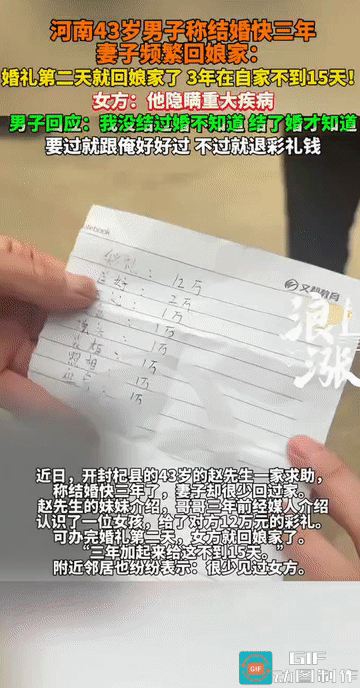 河南43岁男子称结婚快三年
妻子频繁回娘家：
婚礼第二天就回娘家了 3年在自家不到15天！
女方：他隐瞒重大疾病
男子回应：我没结过婚不知道 结了婚才知道
要过就跟俺好好过 不过就退彩礼钱
notebook
文都教育
：12万
：2万
：1万
：1万
：1万
照相：1万
：1万
浪
涨
近日，开封杞县的43岁的赵先生一家求助，
称结婚快三年了，妻子却很少回过家。
赵先生的妹妹介绍，哥哥三年前经媒人介绍
认识了一位女孩，给了对方12万元的彩礼。
可办完婚礼第二天，女方就回娘家了。
“三年加起来给这不到15天。”
附近邻居也纷纷表示：很少见过女方。
GIF
GIF
动图制作